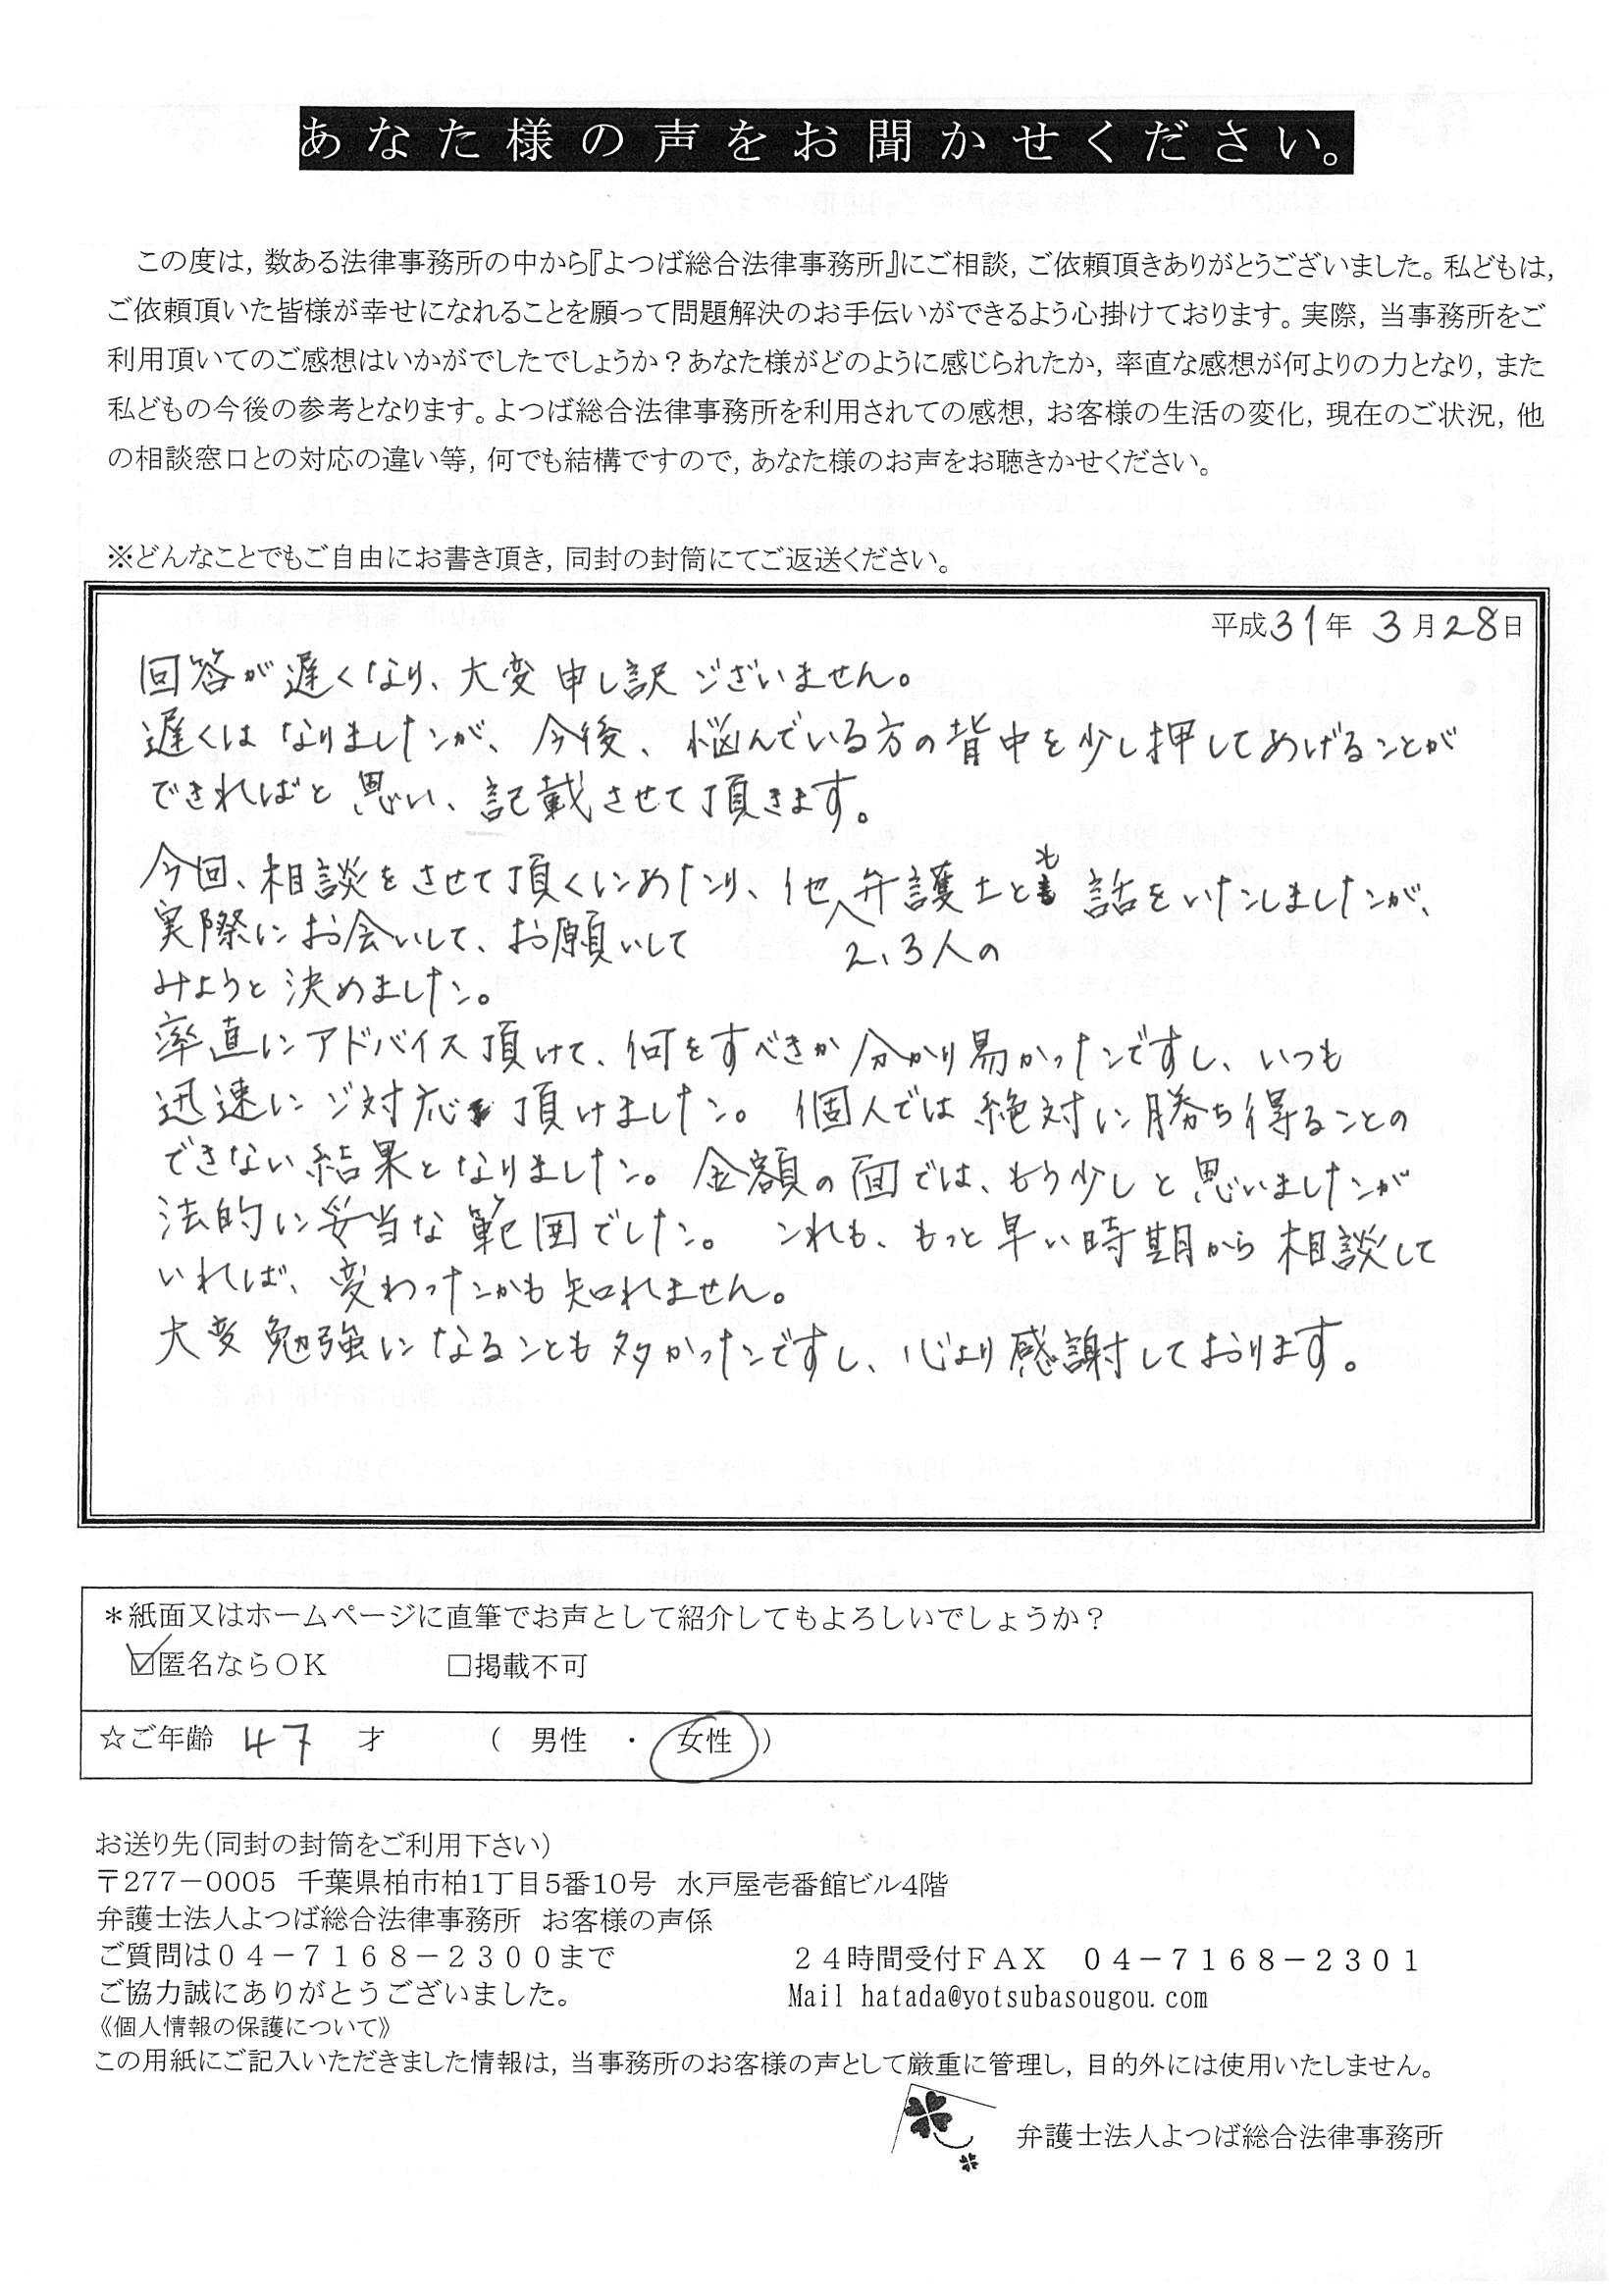 あなた様の声をお聞かせください。
この度は，数ある法律事務所の中から『よつば総合法律事務所』にご相談，ご依頼頂きありがとうございました。私どもは，
ご依頼頂いた皆様が幸せになれることを願って問題解決のお手伝いができるよう心掛けております。実際，当事務所をご
利用頂いてのご感想はいかがでしたでしょうか？あなた様がどのように感じられたか，率直な感想が何よりの力となり，また
私どもの今後の参考となります。よつば総合法律事務所を利用されての感想，お客様の生活の変化，現在のご状況，他
の相談窓口との対応の違い等，何でも結構ですので，あなた様のお声をお聴きかせください。
※どんなことでもご自由にお書き頂き，同封の封筒にてご返送ください。
平成31年 3月28日
回答が遅くなり、大変申し訳ございません。
遅くはなりましたが、今後、悩んでいる方の背中を少し押してあげることが
できればと思い、記載させて頂きます。
今回、相談をさせて頂くにあたり、他2、3人の弁護士とも話をいたしましたが、
実際にお会いして、お願いして
みようと決めました。
率直にアドバイス頂けて、何をすべきか分かり易かったですし、いつも
迅速にご対応頂けました。個人では絶対に勝ち得ることの
できない結果となりました。金額の面では、もう少しと思いましたが
法的に妥当な範囲でした。これも、もっと早い時期から相談して
いれば、変わったかも知れません。
大変勉強になることも多かったですし、心より感謝しております。
＊紙面又はホームページに直筆でお声として紹介してもよろしいでしょうか？
☑匿名ならＯＫ　□掲載不可
☆ご年齢 47 才 （ 男性 ・ 女性 ）
お送り先（同封の封筒をご利用下さい）
〒277－0005 千葉県柏市柏1丁目5番10号 水戸屋壱番館ビル4階
弁護士法人よつば総合法律事務所 お客様の声係
ご質問は０４－７１６８－２３００まで　２４時間受付ＦＡＸ ０４－７１６８－２３０１
ご協力誠にありがとうございました。　Mail hatada@yotsubasougou.com
《個人情報の保護について》
この用紙にご記入いただきました情報は，当事務所のお客様の声として厳重に管理し，目的外には使用いたしません。
弁護士法人よつば総合法律事務所